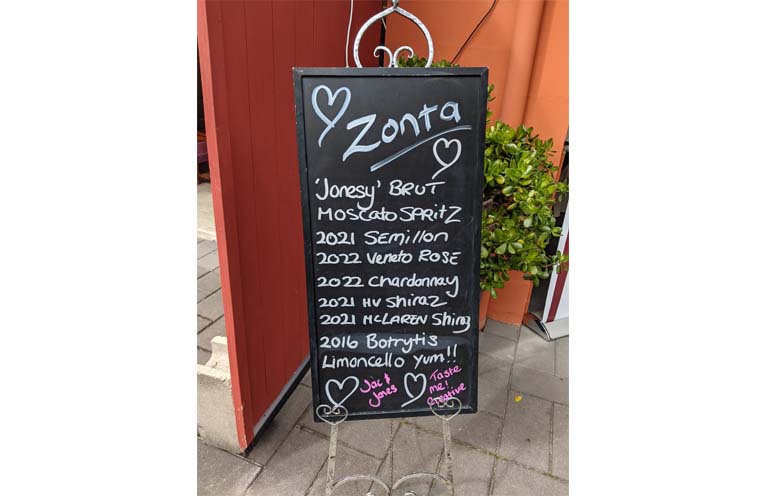 Zonta
'Jonesy' BRUT
MOSCATO SPRITZ
2021 SEMILLON
2022 Veneto ROSE
2022 Chardonnay
2021 HV Shiraz
2021 McLAREN Shiraz
2016 Botrytis
Limoncello Yum!!
Jac &
Jones
Taste
me!
Creative